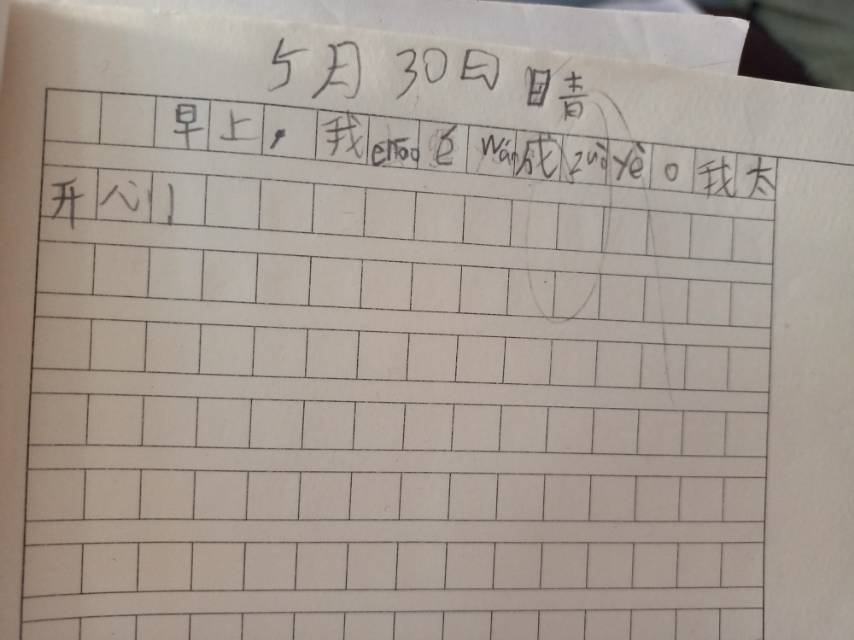 5月30日 睛
早上，我 é wán成zuò yè。我太
开心